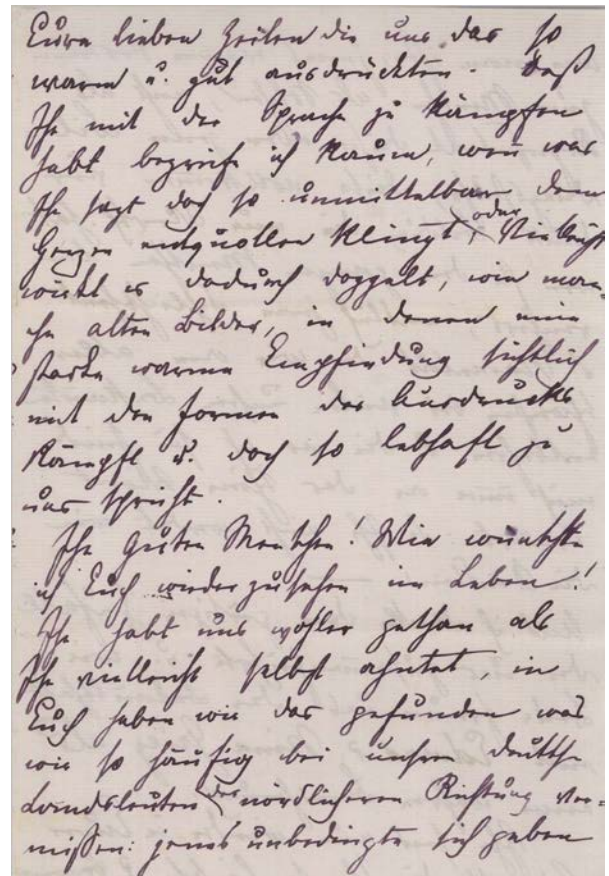 Eure lieben Zeilen die uns das so
warm u. gut ausdrückten. Daß
Ihr mit der Sprache zu kämpfen
habt begreife ich kaum, wen was
Ihr sagt doch so unmittelbar dem
Herzen entquollen klingt, oder vielleicht
wirkt es dadurch doppelt, wie man-
che alten Bilder, in denen eine
starke warme Empfindung sichtlich
mit den Formen des Ausdrucks
kämpft u. doch so lebhaft zu
uns spricht.
Ihr guten Menschen! Wie wünschte
ich Euch wiederzusehen im Leben!
Ihr habt uns wohler gethan als
Ihr vielleicht selbst ahntet, in
Euch haben wir das gefunden was
wir so häufig bei unsren deutsch.
Landsleuten der nördlicheren Richtung ver-
mißen: jenes unbedingte sich geben